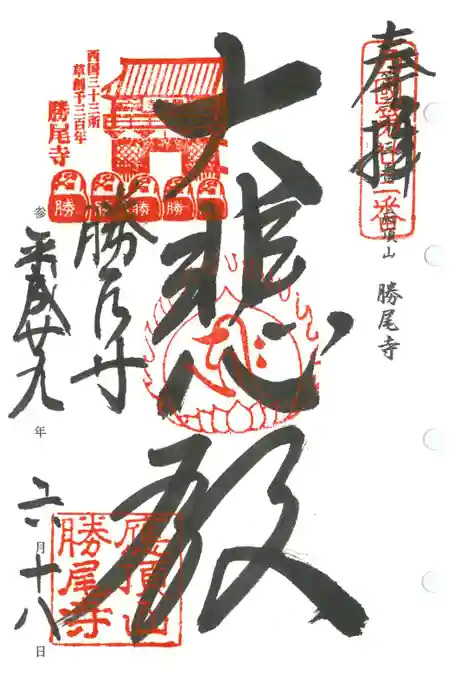 奉拝
頂山 勝尾寺
大悲心殿
西国三十三所
草創千三百年
勝尾寺
勝 勝 勝 勝 勝
勝尾寺
参 平成廿九年 六月十八日
應頂山
勝尾寺